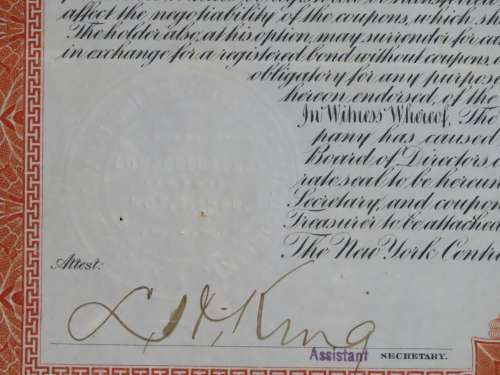 affect the negotiability of the coupons, which sh
The holder also, at his option, may surrender for ca
in exchange for a registered bond without coupons, a
obligatory for any purpose
hereon endorsed, of the
In Witness Whereof, The
pany has caused
Board of Directors, a
rate seal to be hereun
Secretary, and coupon
Treasurer to be attached
The New York Centra
Attest:
L. H. King
Assistant SECRETARY.